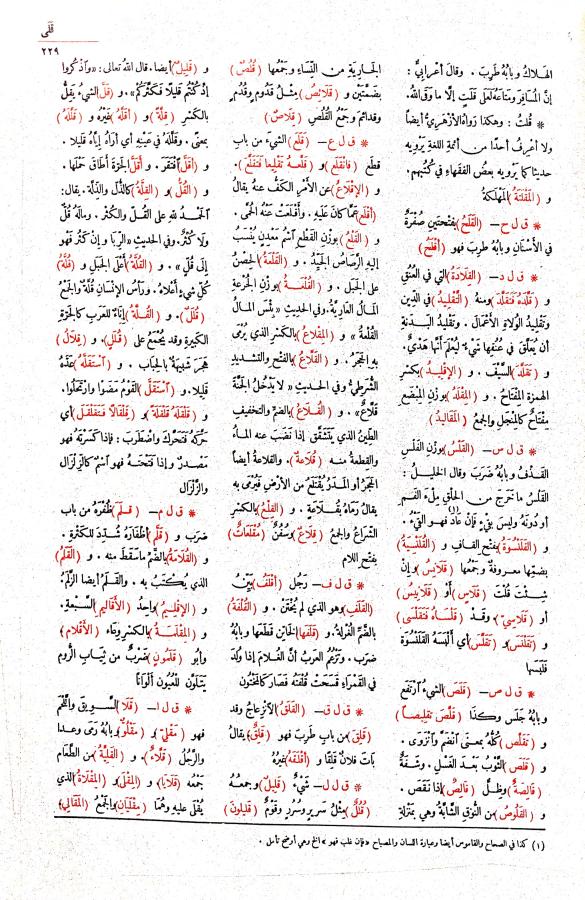 قَلَى
٢٢٩
الهلاك وبابُهُ طَرِبَ . وقال أعرابِيٌّ :
إنَّ المسافِرَ ومتاعَه لَعَلَى قَلَتٍ إلّا ما وَقَى اللهُ .
* قلتُ : وهكذا رواه الأزهَرِيُّ أيضاً
ولا أعرِفُ أحدًا من أئمةِ اللغةِ يَرْوِيه
حديثا كما يَرْوِيه بعضُ الفقهاء في كُتُبِهم .
و (المَقْلَتَة) المَهْلَكة
* ق ل ح – (القَلَحُ) بفتحتين صُفْرَةٌ
في الأسْنانِ وبابُهُ طَرِبَ فهو (أَقْلَحُ)
* ق ل د – (القِلَادَةُ) التي في العُنُقِ
و (قَلَّدَهُ فَتَقَلَّدَ) ومنهُ (التَّقْلِيدُ) في الدِّين
وتقليدُ الوُلَاةِ الأعْمَالَ . وتقليدُ البَدَنةِ
أن يُعَلَّقَ في عُنُقِها شيءٌ لِيُعْلَمَ أنَّها هَدْيٌ .
و (تَقَلَّدَ) السَّيْفَ . و (الإقْلِيدُ) بكسرِ
الهمزة المِفْتاحُ . و (المِقْلَدُ) بوزنِ المِبْضَعِ
مِفْتاحٌ كالمِنْجَلِ والجمعُ (المَقَالِيدُ)
* ق ل س – (القَلْسُ) بوزنِ الفَلْسِ
القَذْفُ وبابُه ضَرَبَ وقال الخليلُ :
القَلْسُ ما خرَجَ من الحَلْقِ مِلْءَ الفَمِ
أو دُونَهُ وليسَ بِقَيْءٍ فإنْ عادَ (١) فهو القَيْءُ .
و (القَلَنْسُوَةُ) بفتح القافِ و (القُلَنْسِيَةُ)
بضمِّها معروفةٌ وجمعُها (قَلَانِسُ) وإنْ
شِئْتَ قُلْتَ (قَلَاسٍ) أو (قَلَانِيسُ)
أو (قَلَاسِيُّ) وقَدْ (قَلْسَاهُ فَتَقَلْسَى)
و (تَقَلْنَسَ) و (تَقَلَّسَ) أي ألْبَسَهُ القَلَنْسُوَةَ
فَلَبِسَها
* ق ل ص – (قَلَصَ) الشيءُ ارْتَفَعَ
وبابُهُ جَلَسَ وكذا (قَلَّصَ تَقْلِيصاً)
و (تَقَلَّصَ) كلُّه بمعنى انْضَمَّ وانْزَوَى .
و (قَلَصَ) الثَّوْبُ بعدَ الغَسْلِ . وشَفَةٌ
(قالِصَةٌ) وظِلٌّ (قالِصٌ) إذا نَقَصَ .
و (القَلُوصُ) من النُّوقِ الشَّابَّةُ وهي بمنزِلةِ
الجارِيةِ من النِّسَاءِ وجَمْعُها (قُلُصٌ)
بضمَّتين و (قَلَائِصُ) مِثْلُ قَدُومٍ وقُدُمٍ
وقدائمَ وجمعُ القُلُصِ (قِلَاصٌ)
* ق ل ع – (قَلَعَ) الشيءَ من بابِ
قطَعَ (فانْقَلَعَ) و (قَلَّعَهُ تَقْلِيعاً فَتَقَلَّعَ) .
و (الإقْلاعُ) عن الأمْرِ الكَفُّ عنه يقالُ
(أقْلَعَ) عمَّا كانَ عليهِ . وأقْلَعَتْ عنهُ الحُمَّى .
و (القَلْعُ) بوزنِ القَطْعِ اسْمُ مَعْدِنٍ يُنْسَبُ
إليهِ الرَّصاصُ الجَيِّدُ . و (القَلْعَةُ) الحِصْنُ
على الجَبَلِ . و (القُلْعَةُ) بوزن الجُرْعةِ
المالُ العارِيةُ . وفي الحديثِ «بِئْسَ المالُ
القُلْعَةُ» و (المِقْلاعُ) بالكَسْرِ الذي يُرْمَى
به الحَجَرُ . و (القَلَّاعُ) بالفتحِ والتشديدِ
الشُّرَطِيُّ وفي الحديثِ «لا يَدْخُلُ الجَنَّةَ
قَلَّاعٌ» . و (القُلَاعُ) بالضمِّ والتخفيفِ
الطِّينُ الذي يَتَشَقَّقُ إذا نَضَبَ عنه الماءُ
والقِطعةُ منه (قُلَاعَةٌ) . والقلاعةُ أيضاً
الحجَرُ أو المَدَرُ يُقْتَلَعُ من الأرضِ فيُرْمَى به
يقالُ رماه بقُلَاعةٍ . و (القِلْعُ) بالكسْرِ
الشِّرَاعُ والجمعُ (قِلَاعٌ) وسُفُنٌ (مُقْلَعَاتٌ)
بفتح اللام
* ق ل ف – رَجُلٌ (أقْلَفُ) بَيِّنُ
(القَلَفِ) وهو الذي لم يُخْتَنْ . و (القُلْفَةُ)
بالضَّمِّ الغُرْلَةُ . و (قَلَفَها) الخاتِنُ قَطَعَها وبابُهُ
ضَرَبَ . وتَزْعُمُ العربُ أنَّ الغُلامَ إذا وُلِدَ
في القَمْرَاءِ فَسَحَتْ قُلْفَتُه فصار كالمَخْتُونِ
* ق ل ق – (القَلَقُ) الانْزِعاجُ وقد
(قَلِقَ) من باب طَرِبَ فهو (قَلِقٌ) يقالُ
باتَ فلانٌ قَلِقًا و (أَقْلَقَهُ) غَيْرُهُ
* ق ل ل – شَيْءٌ (قَلِيلٌ) وجمعُهُ
(قُلُلٌ) مِثلُ سَرِيرٍ وسُرُرٍ وقومٌ (قَلِيلُونَ)
و (قَلِيلٌ) أيضا. قال اللهُ تعالى: «واذْكُروا
إذْ كُنْتُمْ قَلِيلًا فَكَثَّرَكُمْ» . و (قَلَّ) الشيءُ يَقِلُّ
بالكَسْرِ (قِلَّةً) و (أَقَلَّهُ) غَيْرُهُ و (قَلَّلَهُ)
بمعنًى . وقَلَّلَهُ في عَيْنِهِ أي أراهُ إيّاهُ قليلا .
و (أقَلَّ) افْتَقَرَ . و أقَلَّ الجَرَّةَ أطاقَ حَمْلَها .
و (القُلُّ) و (القِلَّةُ) كالذُّلِّ والذِّلَّة. يقال:
الحمدُ للهِ على القُلِّ والكُثْرِ . ومالَهُ قُلٌّ
ولا كُثْرٌ. وفي الحديثِ «الرِّبَا وإن كَثُرَ فهو
إلى قُلٍّ» . و (القُلَّةُ) أعْلَى الجَبَلِ و (قُلَّةُ)
كلِّ شيءٍ أعْلاهُ. ورأسُ الإنسانِ قُلَّةٌ والجمعُ
(قُلَلٌ) . و (القُلَّةُ) إناءٌ للعربِ كالجَرَّةِ
الكبيرةِ وقد يُجْمَعُ على (قُلَلٍ) . و (قِلَالُ)
هَجَرَ شَبِيهةٌ بالحِبَابِ . و (اسْتَقَلَّهُ) عَدَّهُ
قليلا. و (اسْتَقَلَّ) القومُ مَضَوْا وارْتَحَلُوا.
و (قَلْقَلَهُ قَلْقَلَةً) و (قِلْقَالًا فَتَقَلْقَلَ) أي
حرَّكهُ فتحَرَّكَ واضْطَرَبَ : فإذا كَسَرْتَهُ فهو
مَصْدَرٌ وإذا فتحْتَهُ فهو اسْمٌ كالزِّلْزالِ
والزَّلْزالِ
* ق ل م – (قَلَمَ) ظُفْرَهُ من باب
ضرَبَ و (قَلَّمَ) أظفارَهُ شُدِّدَ للكَثْرةِ .
و (القُلَامَةُ) بالضَّمِّ ما سَقَطَ منه . و (القَلَمُ)
الذي يُكتَبُ به . والقَلَمُ أيضا الزَّلَمُ.
و (الإقْلِيمُ) واحدُ (الأقالِيمِ) السَّبْعةِ.
و (المِقْلَمَةُ) بالكسْرِ وِعَاءُ (الأقْلامِ)
وأبو (قَلَمُونَ) ضَرْبٌ من ثِيَابِ الرُّومِ
يَتَلَوَّنُ للعُيُونِ ألْوَاناً
* ق ل ا – (قَلَا) السَّوِيقَ واللَّحْمَ
فهو (مَقْلِيٌّ) و (مَقْلُوٌّ) وبابُهُ رَمَى وعَدَا
والرَّجُلُ (قَلَّاءٌ) . و (القَلِيَّةُ) من الطَّعامِ
جمعُه (قَلَايَا) و (المِقْلَى) و (المِقْلَاةُ) الذي
يُقْلَى عليهِ وهُمَا (مِقْلَيَانِ) والجمعُ (المَقَالِي)
(١) كذا في الصحاح والقاموس أيضا وعبارة اللسان والمصباح «فإن غلب فهو» الخ وهي أوضح تأمل .